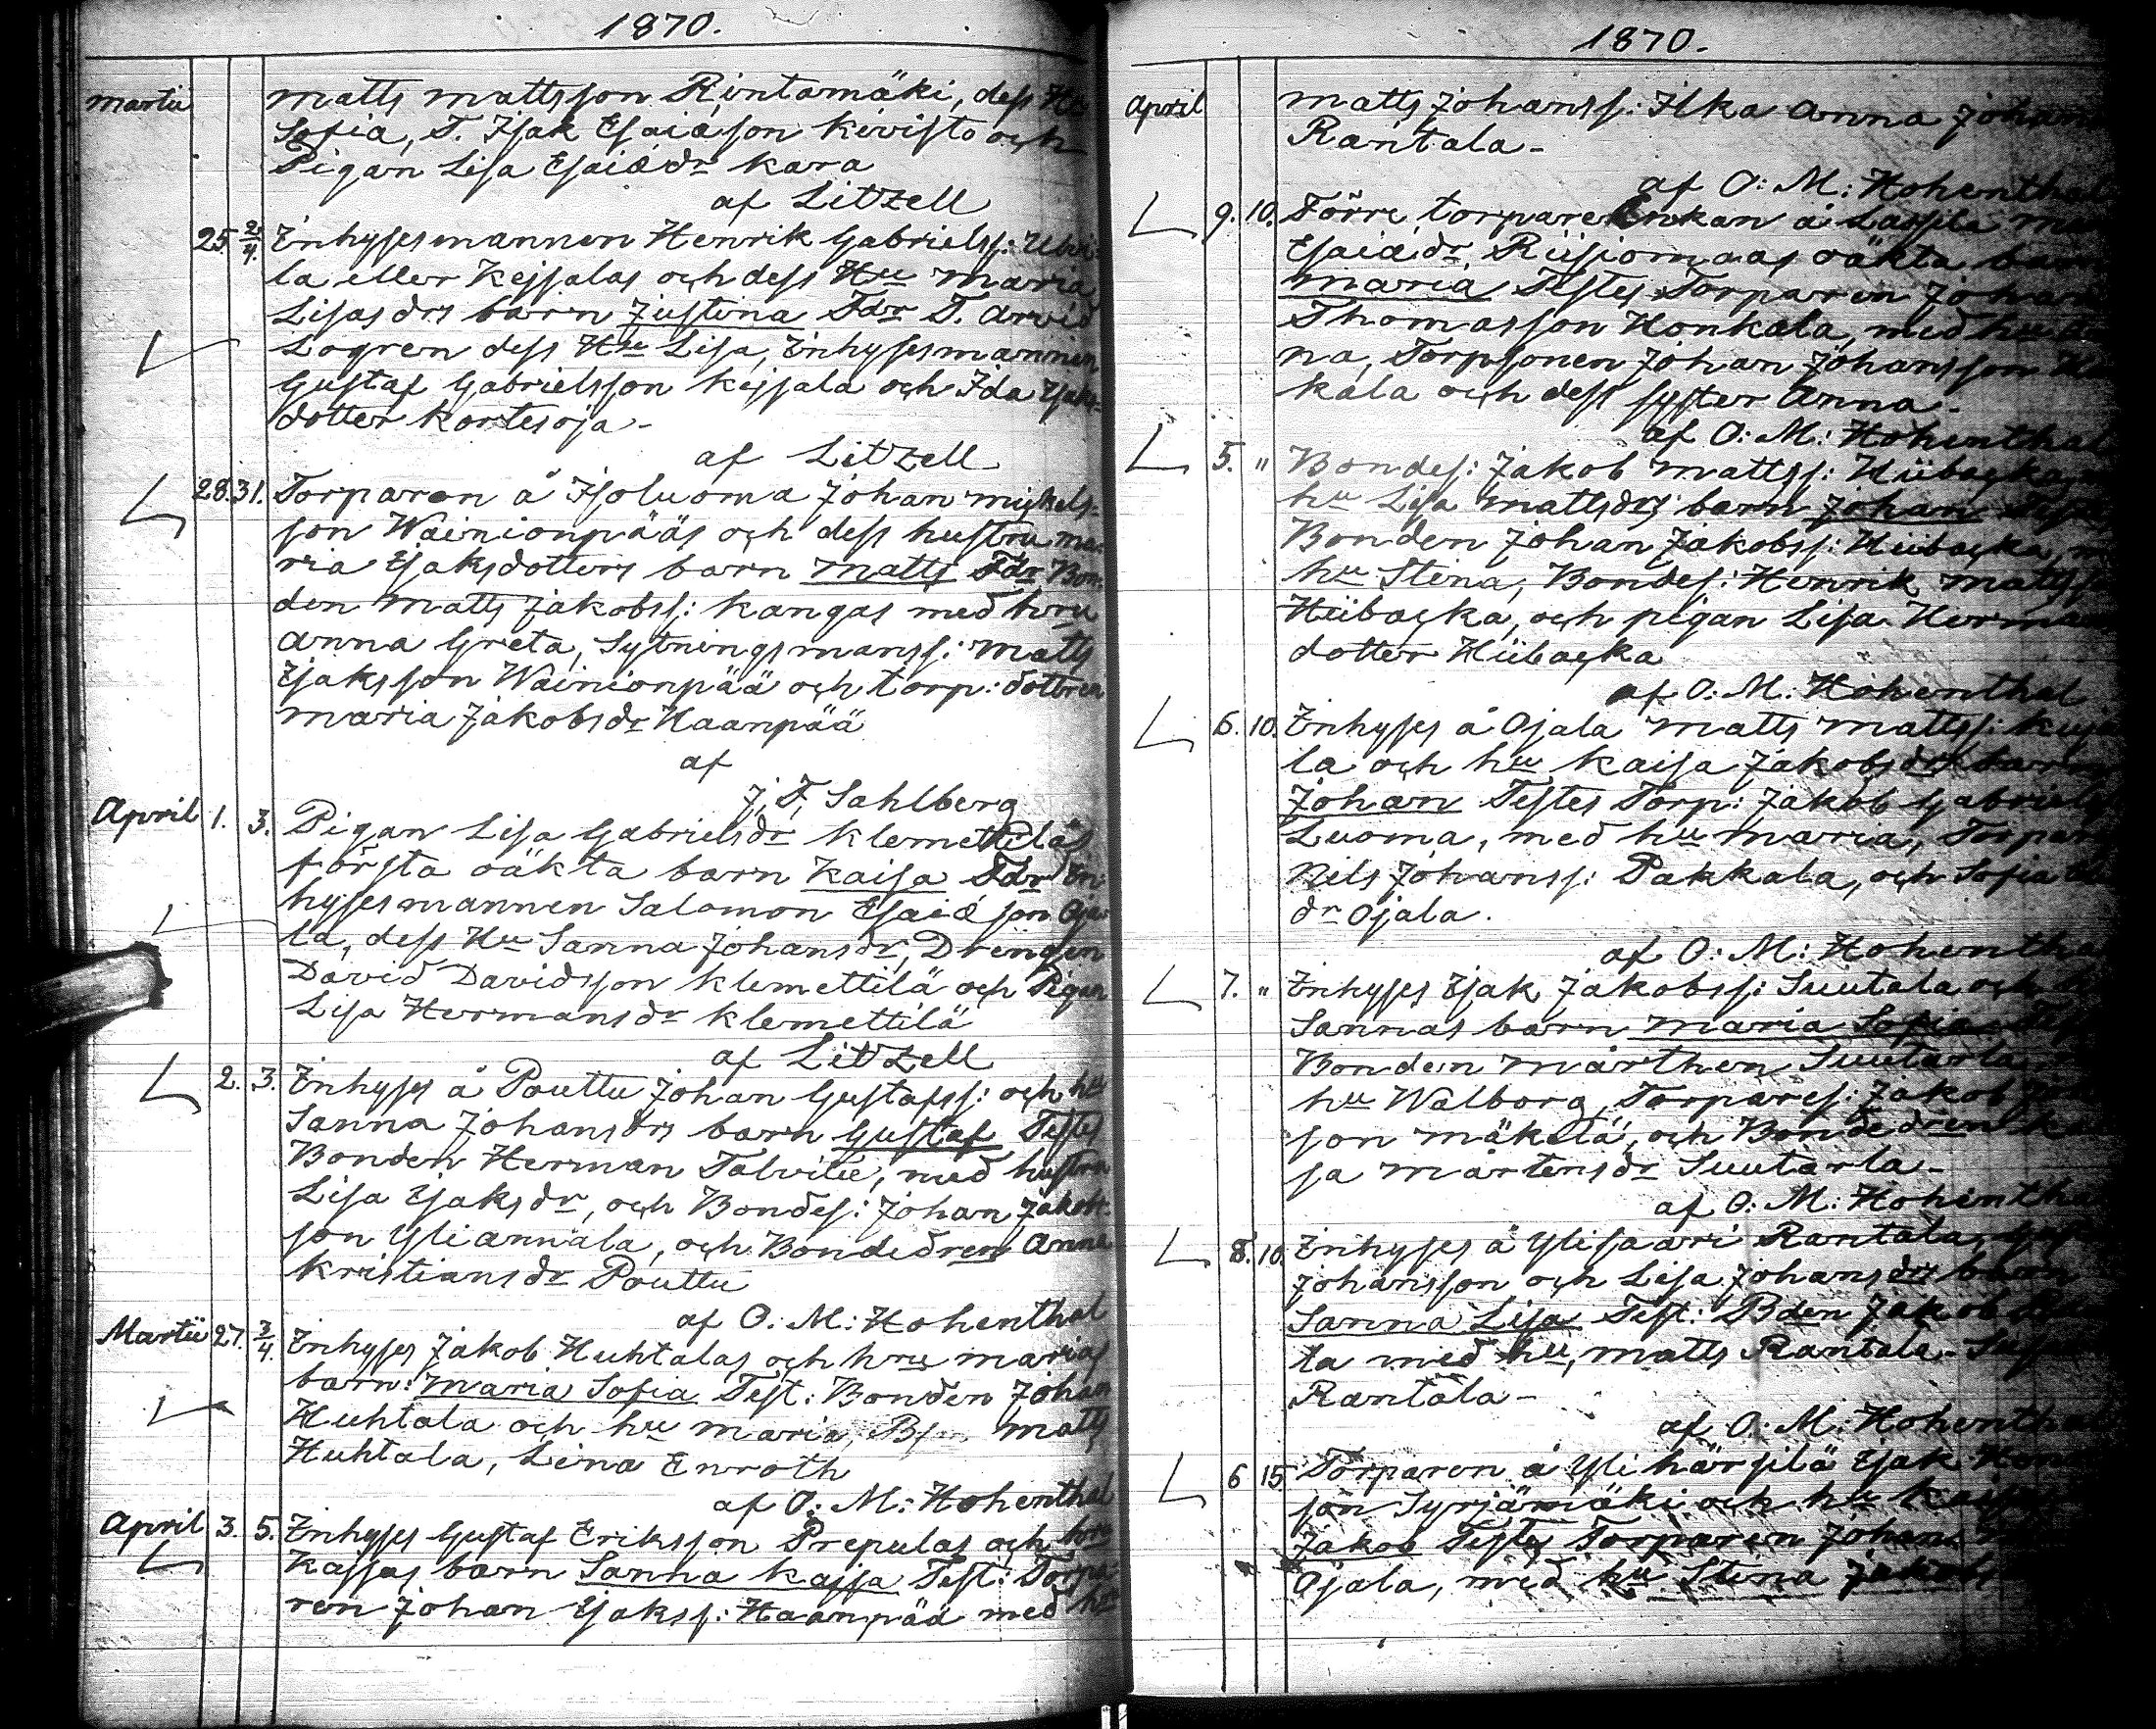 1870.
Martii
Matts Mattsson Rintamäki, dess
Sofia, T. Isak Esaiæson Kivisto och
Pigan Lisa Esaiædr Kara
af Litzell
25. 2/4. Inhysesmannen Henrik Gabrielss:
la eller Kejsalas och dess Hu Maria
Lisasdrs barn Justina Fdr T. Arvid
Logren dess Hu Lisa, Inhysesmannen
Gustaf Gabrielsson Kejsala och Ida Isaks-
dotter Kortesoja-
af Litzell
28. 31. Torparen å Isoluoma Johan Mickels-
son Wainionpääs och dess hustru Ma-
ria Isaksdotters barn Matts Fdr Bon-
den Matts Jakobss: Kangas med hru
Anna Greta, Sytningsmanss: Matts
Isaksson Wainionpää och torp: dottren
Maria Jakobsdr Haanpää
af
J. F. Sahlberg
April 1. 3. Pigan Lisa Gabrielsdr Klemettiläs
första oäkta barn Kaisa Fdr In-
hysesmannen Salomon Esaiæson Oja-
la, dess Hu Sanna Johansdr, Drengen
David Davidsson Klemettilä och Pigan
Lisa Hermansdr Klemettilä
af Litzell
2. 3. Inhyses å Pouttu Johan Gustafss: och hu
Sanna Johansdrs barn Gustaf Testes
Bonden Herman Talvitie, med hustru
Lisa Isaksdr, och Bondes: Johan Jakobs-
son Yliannala, och Bondedren Anna
Kristiansdr Pouttu
af O. M: Hohenthal
Martii 27. 3/4. Inhyses Jakob Huhtalas och hru Marias
barn: Maria Sofia Test: Bonden Johan
Huhtala och hu Maria, Matts
Huhtala, Lina Enroth
af O: M: Hohenthal
April 3. 5. Inhyses Gustaf Eriksson Prepulas och hru
Kajsas barn Sanna Kajsa Test: Torpa-
ren Johan Isakss: Haanpää med hu
1870.
April
Matts Johanss: Ilka Anna
Rantala-
af O: M: Hohenthal
9. 10. Förre torpare Enkan å Lassila
Esaiædr Riisiomaas oäkta
Maria Testes Torparen Johan
Thomasson Honkala, med hu
na, Torpsonen Johan Johansson
kala och dess syster Anna-
af O: M: Hohenthal
5. " Bondes: Jakob Mattss: Hiibacka,
hu Lisa Mattsdrs barn Johan
Bonden Johan Jakobss: Hiibacka,
hu Stina, Bondes: Henrik
Hiibacka, och pigan Lisa
dotter Hiibacka
af O: M: Hohenthal
6. 10. Inhyses å Ojala Matts Mattss:
la och hu Kaisa Jakobsdrs
Johan Testes Torp: Jakob
Luoma, med hu Maria,
Nils Johanss: Pakkala, och Sofia
dr Ojala.
af O: M: Hohenthal
7. " Inhyses Isak Jakobss: Suutala och
Sannas barn Maria Sofia
Bonden Mårthen Suutarla
hu Walborg, Torpares: Jakob
son Mäkelä, och Bondedren
sa Mårtensdr Suutarla-
af O: M: Hohenthal
8. 10. Inhyses å Ylisaari Rantala,
Johansson och Lisa Johansdrs barn
Sanna Lisa Test: Bden Jakob
la med hu, Matts Rantala-
Rantala-
af O: M: Hohenthal
6 15 Torparen å Ylihärsilä Isak
son Syrjämäki och hu
Jakob Testes Torparen Johan
Ojala, med hu Stina